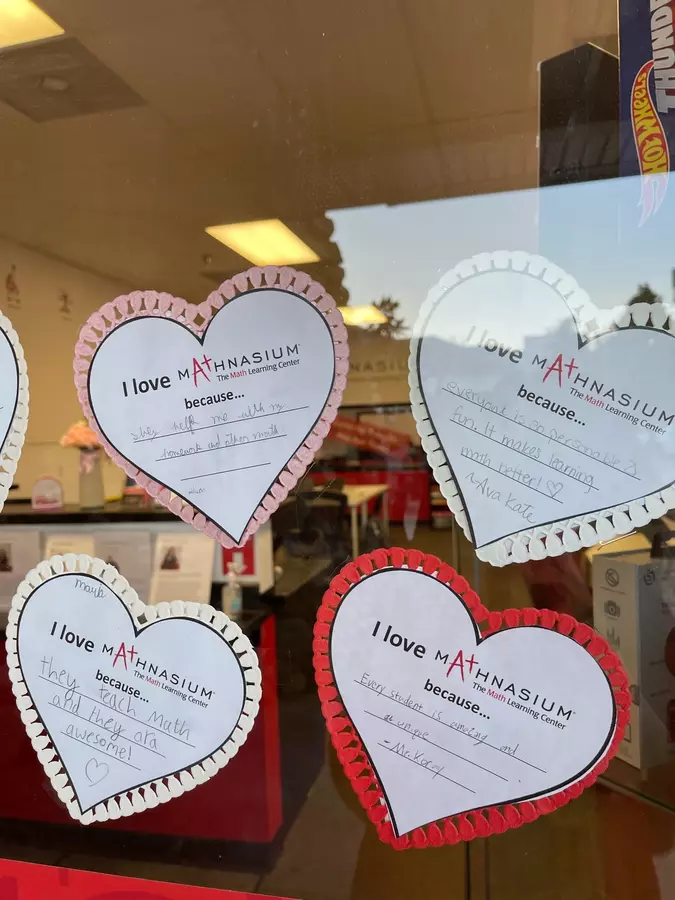 HOT WHEELS
THUND
I love MATHNASIUM
The Math Learning Center
because...
they help me with my
homework and other math
I love MATHNASIUM
The Math Learning Center
because...
everyone is so personable &
fun. It makes learning
math better! ♡
~Ava Kate
NASIUM
I love MATHNASIUM
The Math Learning Center
because...
they teach Math
and they are
awesome!
I love MATHNASIUM
The Math Learning Center
because...
Every student is amazing and
unique